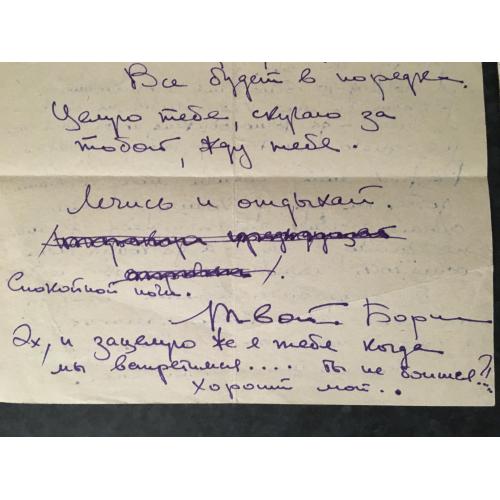 Все будет в порядке.
Целую тебе, скучаю за
тобой, жду тебе.
Лечись и отдыхай.
Спокойной ночи.
Твой Борис
Эх, и зацелую же я тебе когда
мы встретимся.... Ты не боишся?!
Хороший мой..